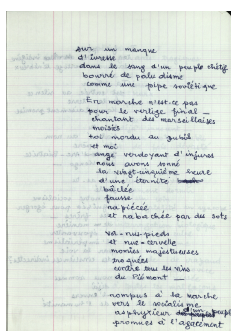 sur un manque
d'ivresse
dans le sang d'un peuple chétif
bourré de paludisme
comme une pipe soviétique
En marche n'est-ce pas
pour le vertige final —
chantant des marseillaises
moisies
toi mordu au gubil
et moi
ange verdoyant d'injures
nous avons sonné
la vingt-unquième heure
d'une éternité
bâclée
fausse
rapiécée
et rabachée par des sots
va-nus-pieds
et nue-cervelle
momies majestueuses
contre tous les vins
du Piémont —
rompus à la marche
vers le socialisme
asphyxieur d'un peuple
promues à l'agacement